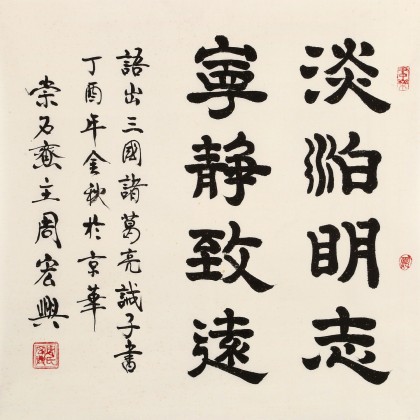 淡泊明志
寧靜致遠
語出三國諸葛亮誡子書
丁酉年金秋於京華
崇石齋主周宏興